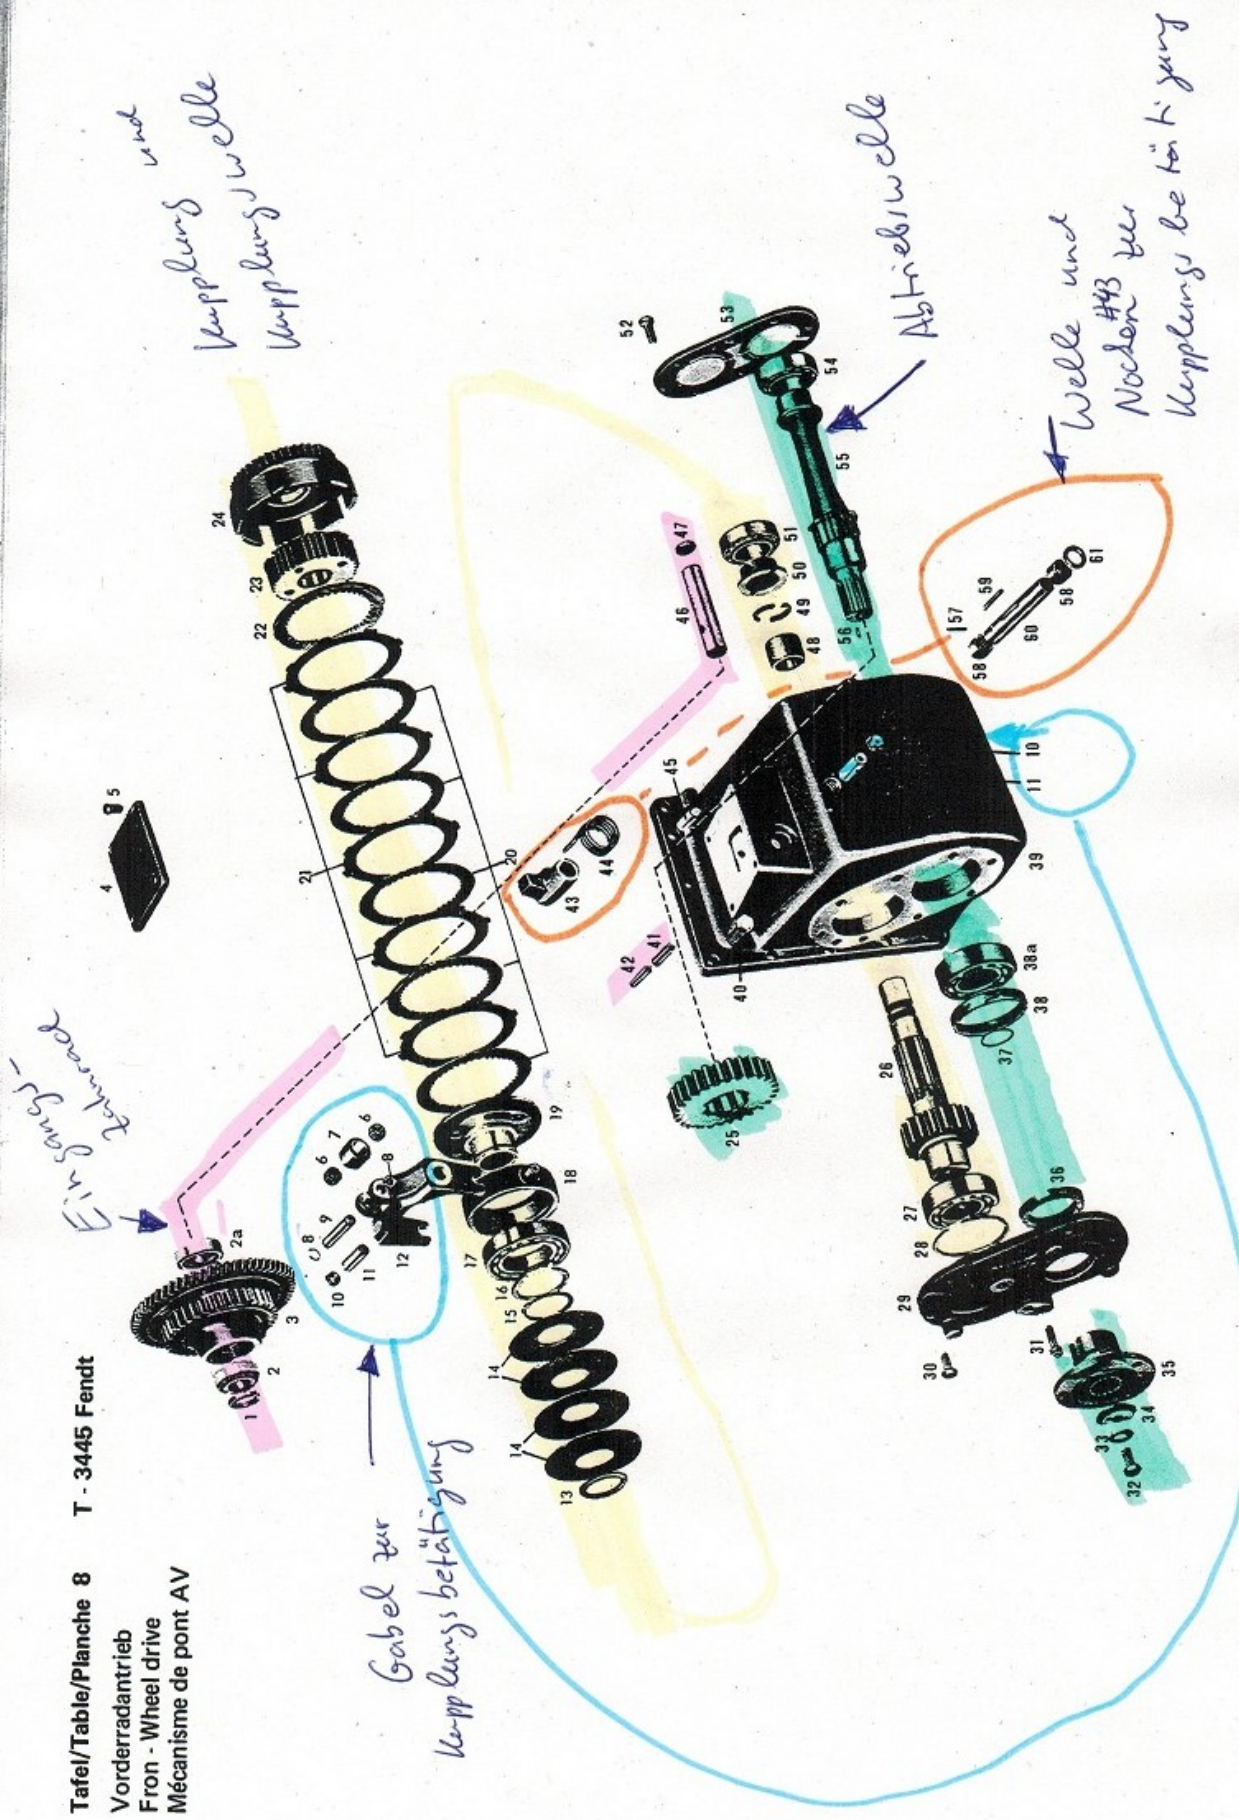 Tafel/Table/Planche 8 T - 3445 Fendt
Vorderradantrieb
Fron - Wheel drive
Mécanisme de pont AV
Eingangs-
zahnrad
Kupplung und
Kupplungswelle
Gabel zur
Kupplungsbetätigung
Abtriebswelle
Welle und
Nocken #43 zur
Kupplungsbetätigung
1
2
3
2a
4
5
6
7
6
8
8
9
10
11
12
13
14
14
15
16
17
18
19
20
21
22
23
24
25
26
27
28
29
30
31
32
33
34
35
36
37
38
38a
39
40
41
42
43
44
45
46
47
48
49
50
51
52
53
54
55
56
57
58
59
60
58
61
10
11